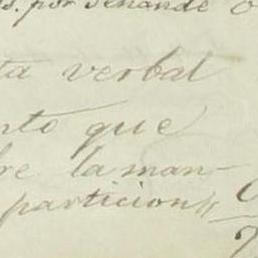 s. por
ta verbal
nto que
re la man-
particion